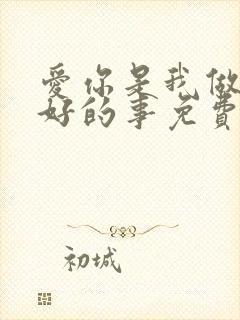 爱你是我做
好的事免费
初城